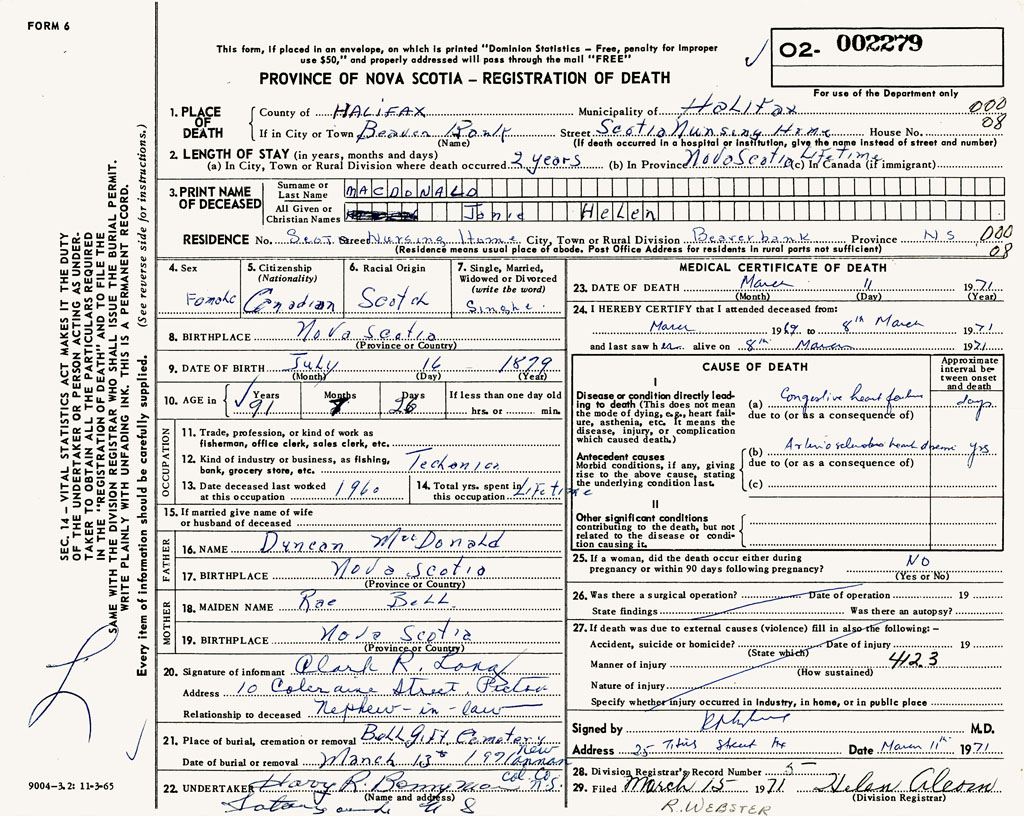 FORM 6
This form, if placed in an envelope, on which is printed "Dominion Statistics – Free, penalty for improper
use $50," and properly addressed will pass through the mail "FREE"
PROVINCE OF NOVA SCOTIA – REGISTRATION OF DEATH
02- 002279
For use of the Department only
000
08
1. PLACE OF DEATH
County of HALIFAX Municipality of HALIFAX
If in City or Town Beaver Bank Street Scotia Nursing Home House No.
(Name) (If death occurred in a hospital or institution, give the name instead of street and number)
2. LENGTH OF STAY (in years, months and days)
(a) In City, Town or Rural Division where death occurred 2 years (b) In Province Nova Scotia Lifetime (c) In Canada (if immigrant)
3. PRINT NAME OF DECEASED
Surname or Last Name MACDONALD
All Given or Christian Names Janie HELEN
RESIDENCE No. Scot. Street Nursing Home City, Town or Rural Division Beaverbank Province NS
(Residence means usual place of abode. Post Office Address for residents in rural parts not sufficient)
000
08
4. Sex
Female
5. Citizenship
(Nationality)
Canadian
6. Racial Origin
Scotch
7. Single, Married,
Widowed or Divorced
(write the word)
Single
8. BIRTHPLACE Nova Scotia
(Province or Country)
9. DATE OF BIRTH July 16 1879
(Month) (Day) (Year)
10. AGE in Years 91 Months Days 26 If less than one day old
hrs. or min.
OCCUPATION
11. Trade, profession, or kind of work as
fisherman, office clerk, sales clerk, etc.
12. Kind of industry or business, as fishing,
bank, grocery store, etc.
13. Date deceased last worked
at this occupation 1960
14. Total yrs. spent in
this occupation Lifetime
15. If married give name of wife
or husband of deceased
FATHER
16. NAME Duncan MacDonald
17. BIRTHPLACE Nova Scotia
(Province or Country)
MOTHER
18. MAIDEN NAME Rae Bell
19. BIRTHPLACE Nova Scotia
(Province or Country)
20. Signature of informant Clark R. Long
Address 10 Coleraine Street, Pictou
Relationship to deceased Nephew-in-law
21. Place of burial, cremation or removal Cemetery
Date of burial or removal March 13th 1971 New Annan
Col. Co. N.S.
22. UNDERTAKER Harry R.
(Name and address)
N S
MEDICAL CERTIFICATE OF DEATH
23. DATE OF DEATH March 11 1971
(Month) (Day) (Year)
24. I HEREBY CERTIFY that I attended deceased from:
March 1969 to 8th March 1971
and last saw her alive on 8th March 1971
CAUSE OF DEATH
Approximate
interval be-
tween onset
and death
I
Disease or condition directly lead-
ing to death (This does not mean
the mode of dying, e.g., heart fail-
ure, asthenia, etc. It means the
disease, injury, or complication
which caused death.)
(a) Congestive heart failure days
due to (or as a consequence of)
Antecedent causes
Morbid conditions, if any, giving
rise to the above cause, stating
the underlying condition last.
(b) Arteriosclerotic heart disease yrs
due to (or as a consequence of)
(c)
II
Other significant conditions
contributing to the death, but not
related to the disease or condi-
tion causing it.
25. If a woman, did the death occur either during
pregnancy or within 90 days following pregnancy? No
(Yes or No)
26. Was there a surgical operation? Date of operation 19
State findings Was there an autopsy?
27. If death was due to external causes (violence) fill in also the following: –
Accident, suicide or homicide? Date of injury 19
(State which)
Manner of injury 4123
(How sustained)
Nature of injury
Specify whether injury occurred in industry, in home, or in public place
Signed by M.D.
Address 25 Titus Street Hx Date March 11th 1971
28. Division Registrar's Record Number 5
29. Filed March 15 1971 Helen
(Division Registrar)
R. WEBSTER
SEC. 14 – VITAL STATISTICS ACT MAKES IT THE DUTY
OF THE UNDERTAKER OR PERSON ACTING AS UNDER-
TAKER TO OBTAIN ALL THE PARTICULARS REQUIRED
IN THE "REGISTRATION OF DEATH" AND TO FILE THE
SAME WITH THE DIVISION REGISTRAR WHO SHALL ISSUE THE BURIAL PERMIT.
WRITE PLAINLY WITH UNFADING INK. THIS IS A PERMANENT RECORD.
Every item of information should be carefully supplied. (See reverse side for instructions.)
9004-3.2: 11-3-65